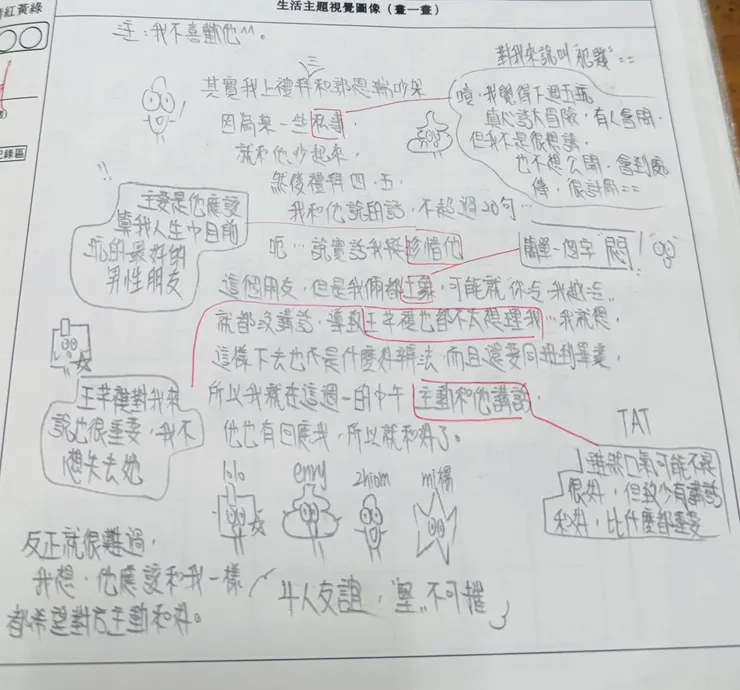 生活主題視覺圖像（畫一畫）
紅黃綠
記錄區
註：我不喜歡他^^。
對我來說叫"犯賤"==
其實我上禮拜三和郭恩瑜吵架
因為某一些私事，
就和他吵起來，
然後禮拜四、五，
我和他說的話，不超過20句…
嘖，我覺得下週五玩
真心話大冒險，有人會問，
但我不是很想講，
也不想公開，會到處
傳，很討厭==
!!
主要是他應該
算我人生中目前
玩的最好的
男性朋友
呃…說實話我挺珍惜他
簡單一個字"悶"!
這個朋友，但是我倆都，可能就你冷我越冷..
就都沒講話，導致王芊禮也都不太想理我…我就想，
這樣下去也不是什麼好辦法，而且還要同班到畢業，
所以我就在這週一的中午主動和他講話，
他也有回應我，所以就和好了。
王芊禮對我來
說也很重要，我不
想失去她
TAT
雖然口氣可能不是
很好，但致少有講話
和好，比什麼都重要
lolo
enny
反正就很難過，
我想，他應該和我一樣
都希望對方主動和好。
4人友誼，"堅"不可摧